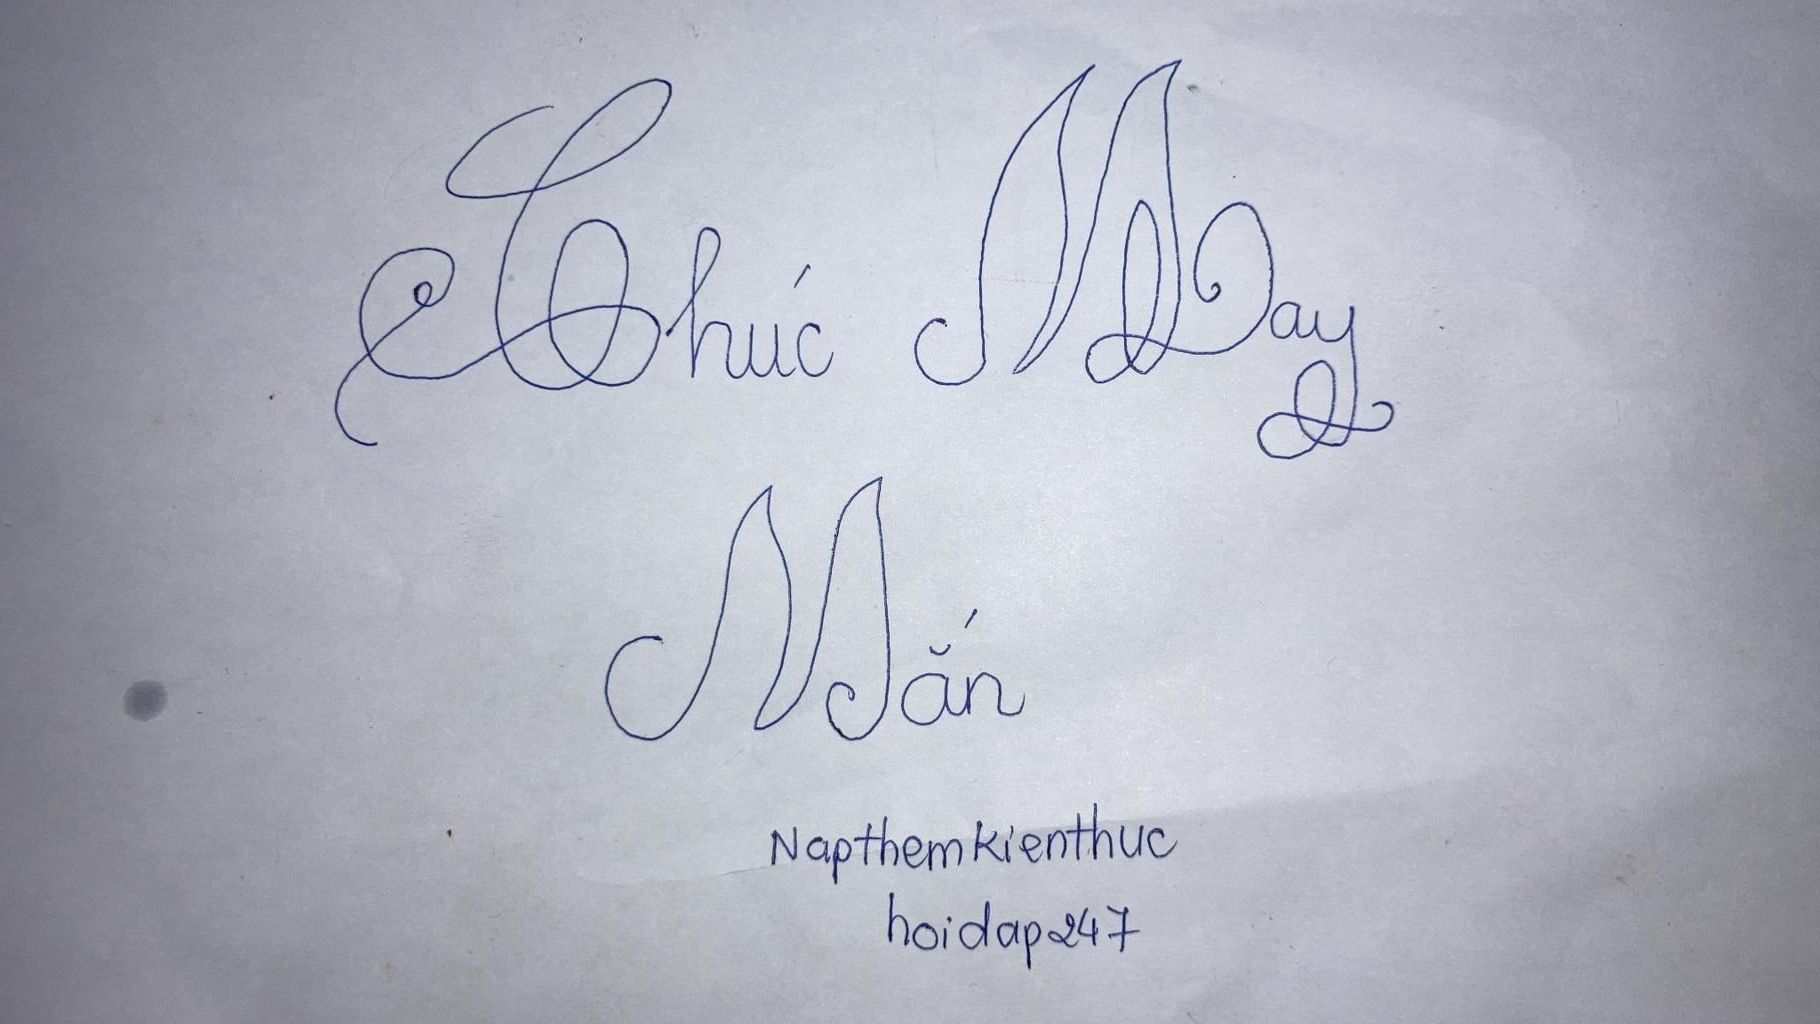 Chúc May
Mắn
Napthemkienthuc
hoidap247